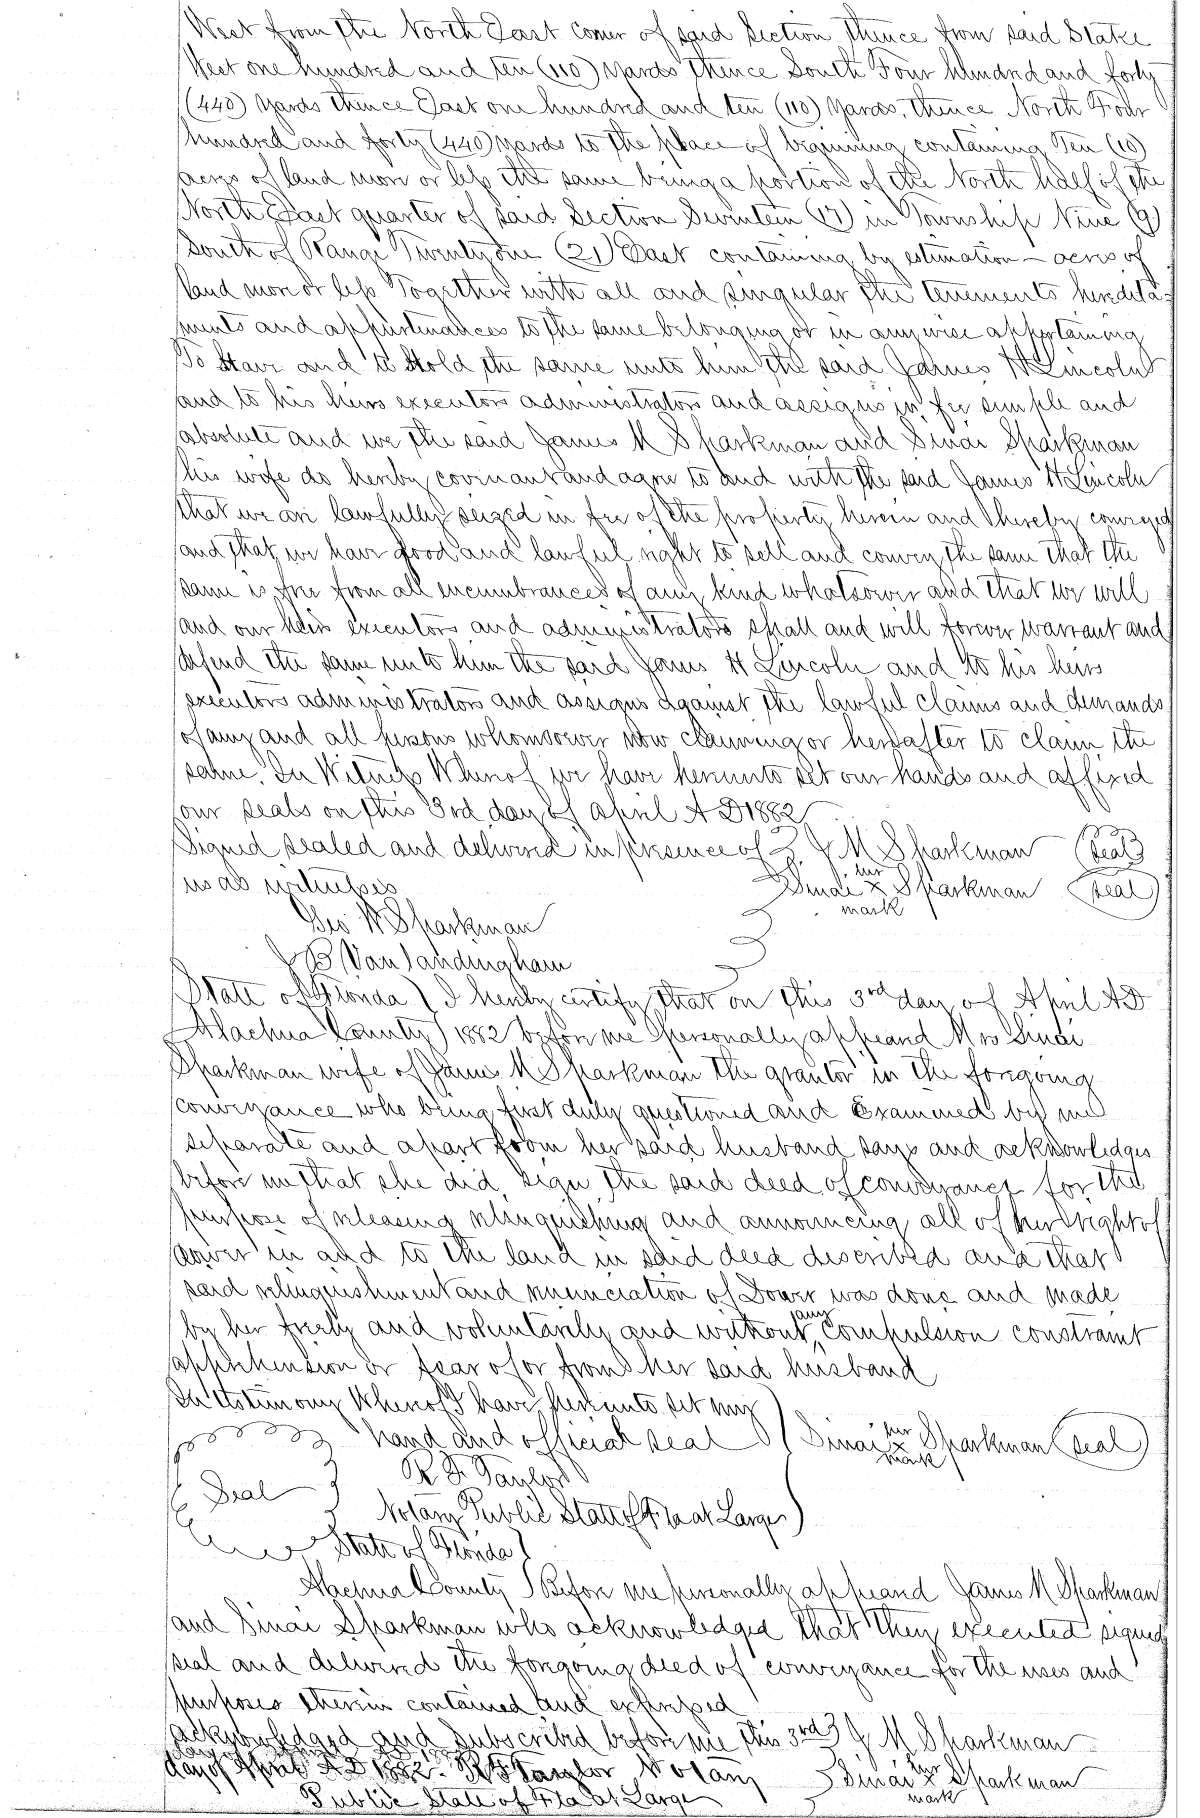 West from the North East corner of said Section thence from said Stake
West one hundred and ten (110) Yards thence South Four hundred and forty
(440) Yards thence East one hundred and ten (110) Yards, thence North Four
hundred and forty (440) yards to the place of beginning containing Ten (10)
acres of land more or less the same being a portion of the North half of the
North East quarter of said Section Seventeen (17) in Township Nine (9)
South of Range Twenty one (21) East containing by estimation – acres of
land more or less Together with all and singular the tenements heredita=
ments and appurtenances to the same belonging or in anywise appertaining
To Have and to Hold the same unto him the said James H Lincoln
and to his heirs executors administrators and assigns in fee simple and
absolute and we the said James M Sparkman and Sinai Sparkman
his wife do hereby covenant and agree to and with the said James H Lincoln
that we are lawfully seized in fee of the property herein and hereby conveyed
and that we have good and lawful right to sell and convey the same that the
same is free from all incumbrances of any kind whatsoever and that we will
and our heirs executors and administrators shall and will forever warrant and
defend the same unto him the said James H Lincoln and to his heirs
executors administrators and assigns against the lawful claims and demands
of any and all persons whomsoever now claiming or hereafter to claim the
same. In Witness Whereof we have hereunto set our hands and affixed
our seals on this 3rd day of April A D 1882
Signed sealed and delivered in presence of J M Sparkman (seal)
us as witnesses Sinai her x mark Sparkman (seal)
Geo W Sparkman
J B Vanlandingham
State of Florida } I hereby certify that on this 3rd day of April A D
Alachua County } 1882 before me personally appeared Mrs Sinai
Sparkman wife of James M Sparkman the grantor in the foregoing
conveyance who being first duly questioned and examined by me
separate and apart from her said husband says and acknowledges
before me that she did sign the said deed of conveyance for the
purpose of releasing relinquishing and announcing all of her right of
dower in and to the land in said deed described and that
said relinquishment and renunciation of Dower was done and made
by her freely and voluntarily and without any compulsion constraint
apprehension or fear of or from her said husband
In testimony Whereof I have hereunto set my
hand and official seal } Sinai her x mark Sparkman (seal)
Seal R F Taylor
Notary Public State of Fla at Large
State of Florida }
Alachua County } Before me personally appeared James M Sparkman
and Sinai Sparkman who acknowledged that they executed signed
seal and delivered the foregoing deed of conveyance for the uses and
purposes therein contained and expressed
acknowledged and subscribed before me this 3rd J M Sparkman
day of April A D 1882. R F Taylor Notary Sinai her x mark Sparkman
Public State of Fla at Large